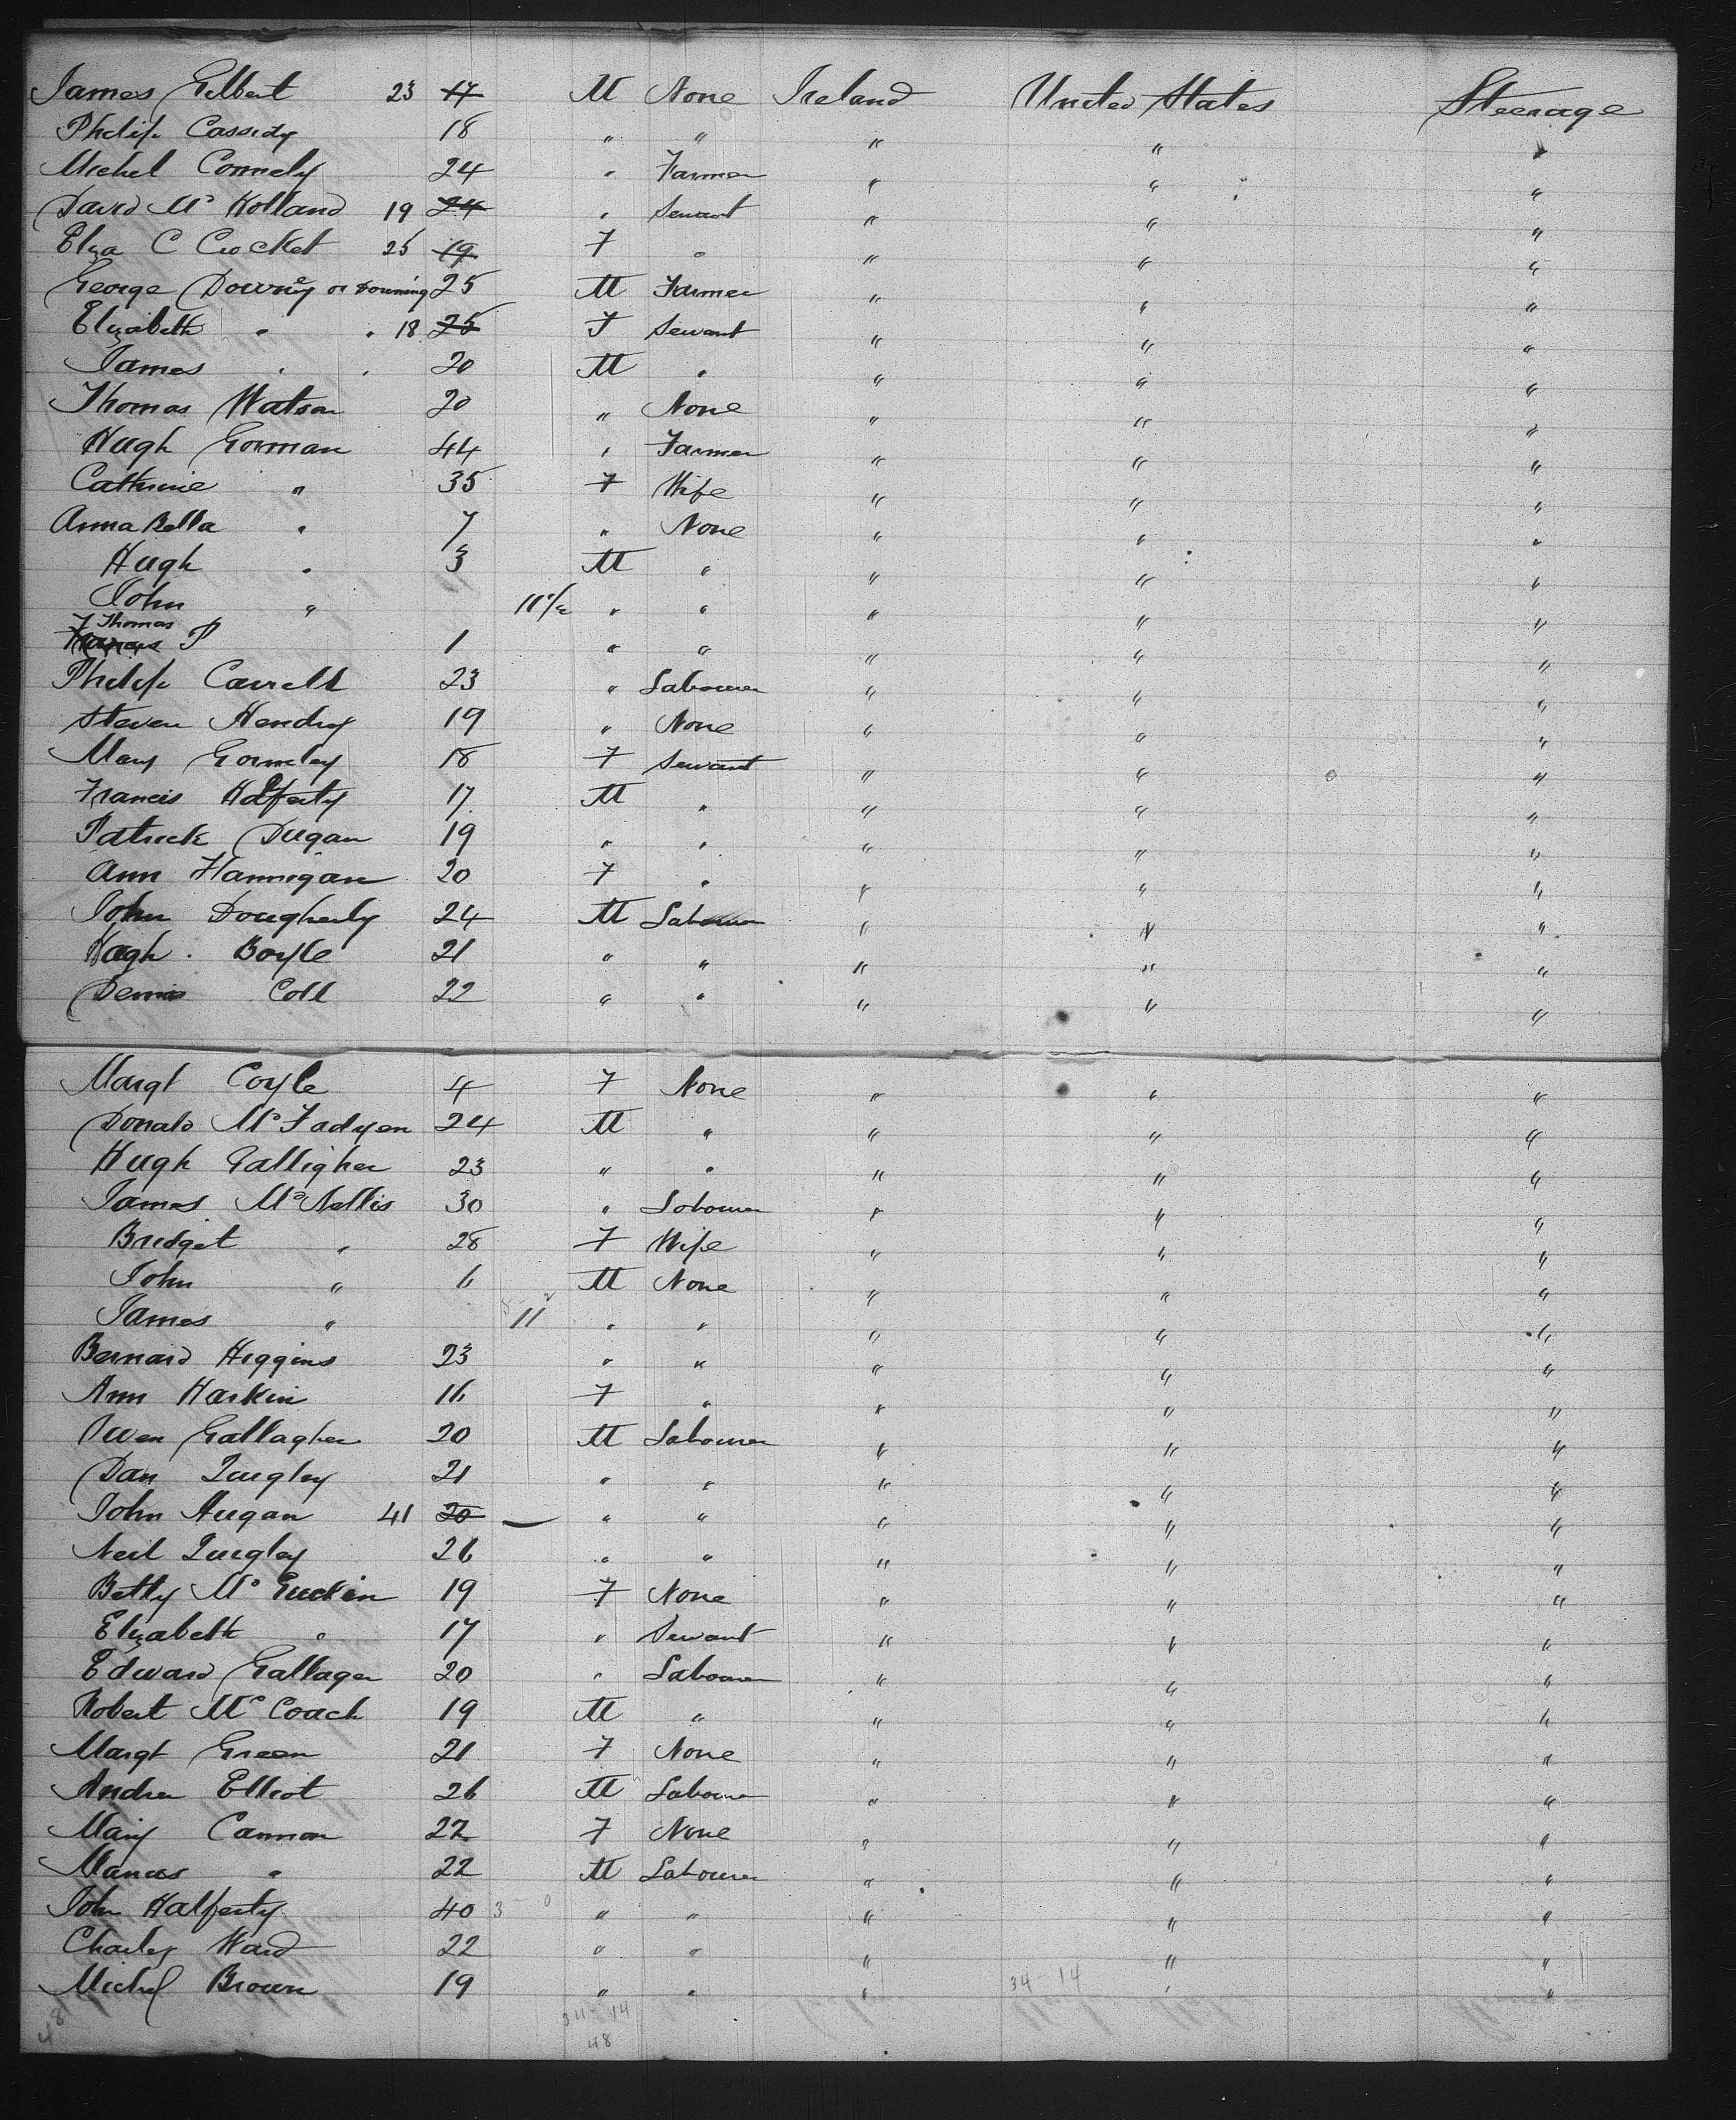 James Gilbert 23 17 M None Ireland United States Steerage
Philip Cassidy 18 " " " " "
Michel Connely 24 " Farmer " " "
David Mc Holland 19 24 " Servant " " "
Eliza C Crocket 25 19 F " " " "
George Downey or Downing 25 M Farmer " " "
Elizabeth " " 18 25 F Servant " " "
James " " 20 M " " " "
Thomas Watson 20 " None " " "
Hugh Gorman 44 " Farmer " " "
Catherine " 35 F Wife " " "
Anna Bella " 7 " None " " "
Hugh " 3 M " " " "
John " 11/12 " " " " "
Thomas
Francis P 1 " " " " "
Philip Carrell 23 " Labourer " " "
Steven Hendry 19 " None " " "
Mary Gormeley 18 F Servant " " "
Francis Halferty 17 M " " " "
Patrick Dugan 19 " " " " "
Ann Hannigan 20 F " " " "
John Dougherty 24 M Labourer " " "
Hugh Boyle 21 " " " " "
Dennis Coll 22 " " " " "
Margt Coyle 4 F None " " "
Donald McFadyen 24 M " " " "
Hugh Galligher 23 " " " " "
James McNellis 30 " Labourer " " "
Bridget " 28 F Wife " " "
John " 6 M None " " "
James " 11 " " " " "
Bernard Higgins 23 " " " " "
Ann Harkin 16 F " " " "
Owen Gallagher 20 M Labourer " " "
Dan Quigley 21 " " " " "
John Hugan 41 20 — " " " " "
Neil Quigley 26 " " " " "
Betty McGuckin 19 F None " " "
Elizabeth " 17 " Servant " " "
Edward Gallager 20 " Labourer " " "
Robert McCoach 19 M " " " "
Margt Green 21 F None " " "
Andrew Elliot 26 M Labourer " " "
Mary Cannon 22 F None " " "
Manus " 22 M Labourer " " "
John Halferty 40 3 - 0 " " " " "
Charley Ward 22 " " " " "
Michel Brown 19 " " " " "
34 - 14
34 - 14
48 48